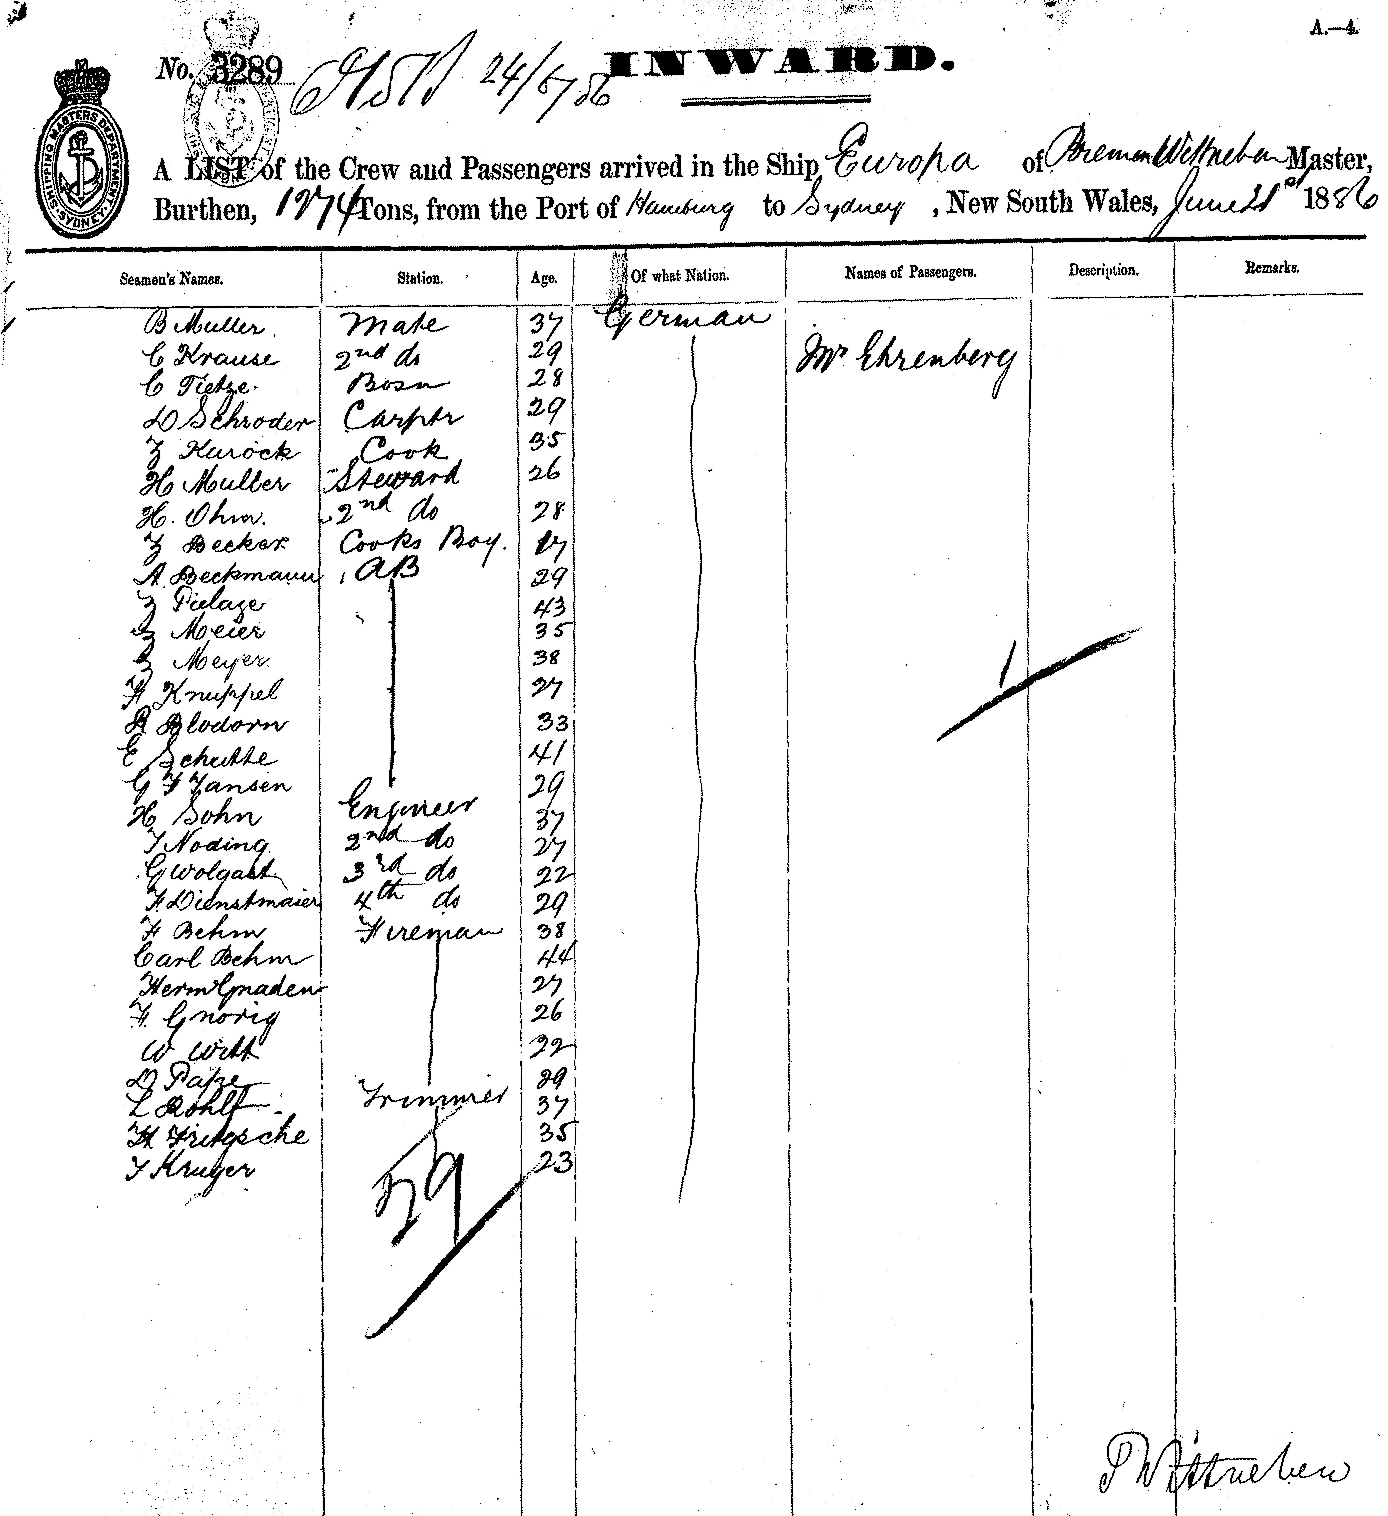 A.—4.
No. 3289 24/6/86 INWARD.
SHIPPING MASTERS DEPARTMENT SYDNEY
A LIST of the Crew and Passengers arrived in the Ship Europa of Bremen Wittneben Master,
Burthen, 1274 Tons, from the Port of Hamburg to Sydney, New South Wales, June 21st 1886
Seamen's Names. Station. Age. Of what Nation. Names of Passengers. Description. Remarks.
B Muller Mate 37 German
C Krause 2nd do 29 Mr Ehrenberg
C Tietze Bosn 28
D Schroder Carptr 29
Kurock Cook 35
H Muller Steward 26
H. Ohm. 2nd do 28
Becker Cooks Boy. 17
A Beckmann AB 29
Pielage 43
Meier 35
Meyer 38
H Knuppel 27
R Blodorn 33
E Schutte 41
G F Jansen 29
H Sohn Engineer 37
J Noding 2nd do 27
G Wolgast 3rd do 22
F Dienstmaier 4th do 29
F Behm Fireman 38
Carl Behm 44
Herm Gnaden 27
F. Gnorig 26
W Witt 22
D Pape 29
L Rohlf Trimmer 37
H Fritzsche 35
J Kruger 23
1
29
Wittneben